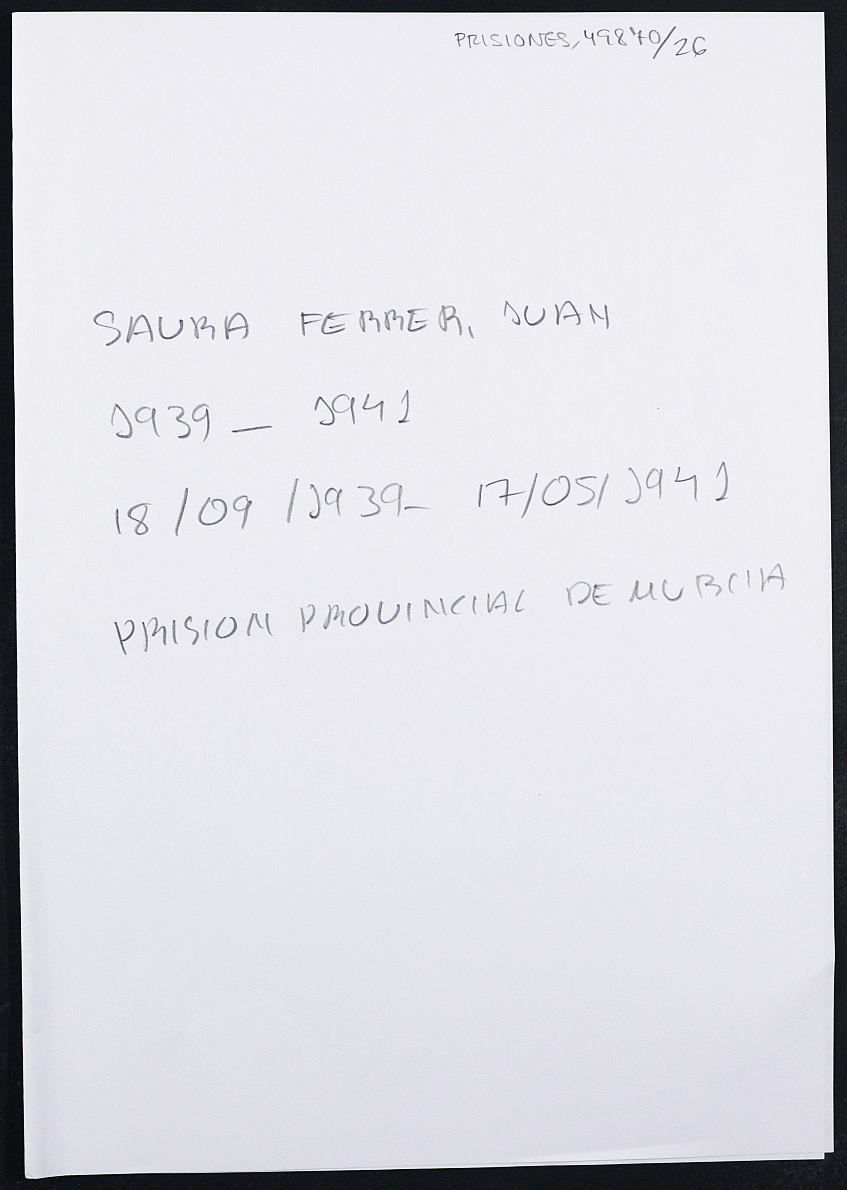 PRISIONES, 49870/26
SAURA FERRER, JUAN
1939 - 1941
18/09/1939- 17/05/1941
PRISION PROVINCIAL DE MURCIA